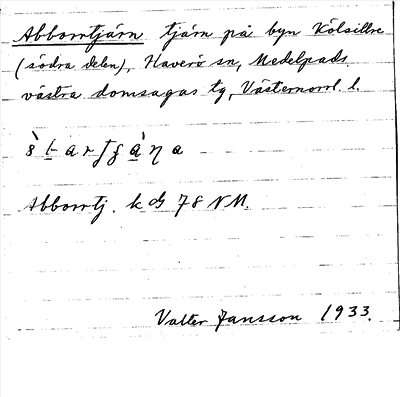 Abborrtjärn tjärn på byn Kölsillre
(södra delen), Haverö sn, Medelpads
västra domsagas tg, Västernorrl. l.
Abborrtj. k bl 78 NM.
Valter Jansson 1933.